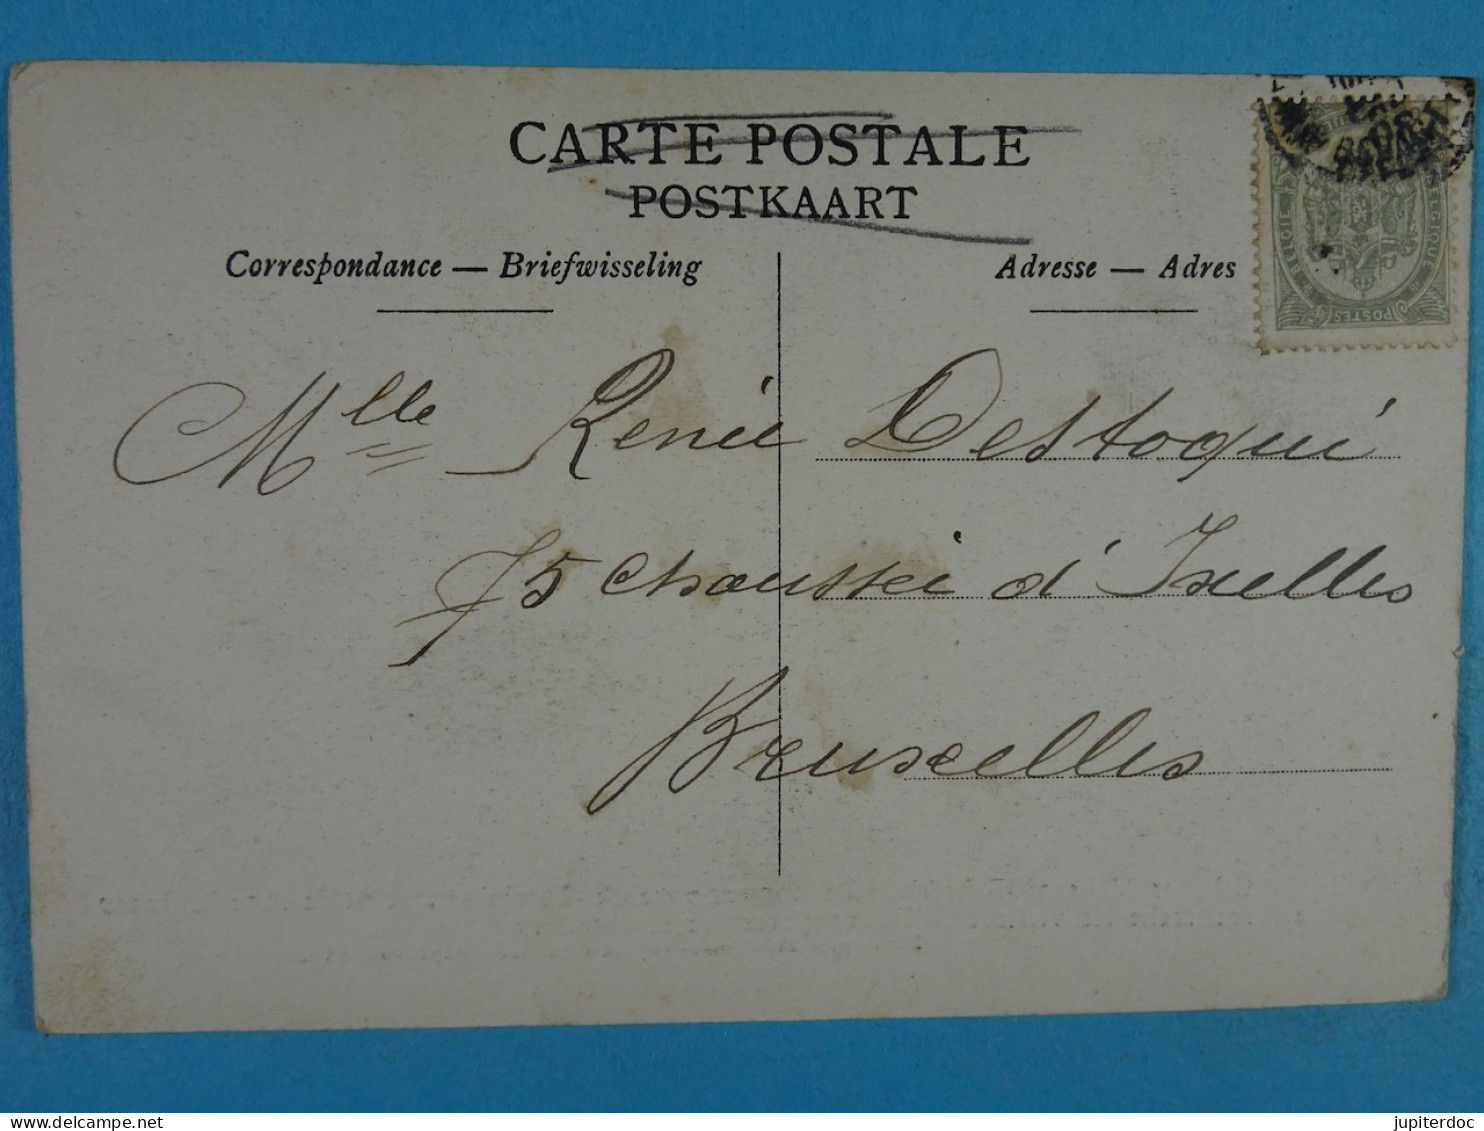 CARTE POSTALE
POSTKAART
Correspondance — Briefwisseling
Adresse — Adres
BELGIE
POSTES
BELGIQUE
Mlle Renée Destoqui
75 Chaussée d'Ixelles
Bruxelles
jupiterdoc